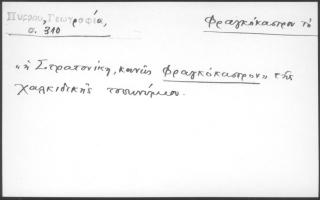 Πύρρου, Γεωγραφία,
σ. 310
Φραγκόκαστρον τὸ
"ἡ Στρατονίκη, κοινῶς Φραγκόκαστρον" τῆς
Χαλκιδικῆς τοπωνύμιον.